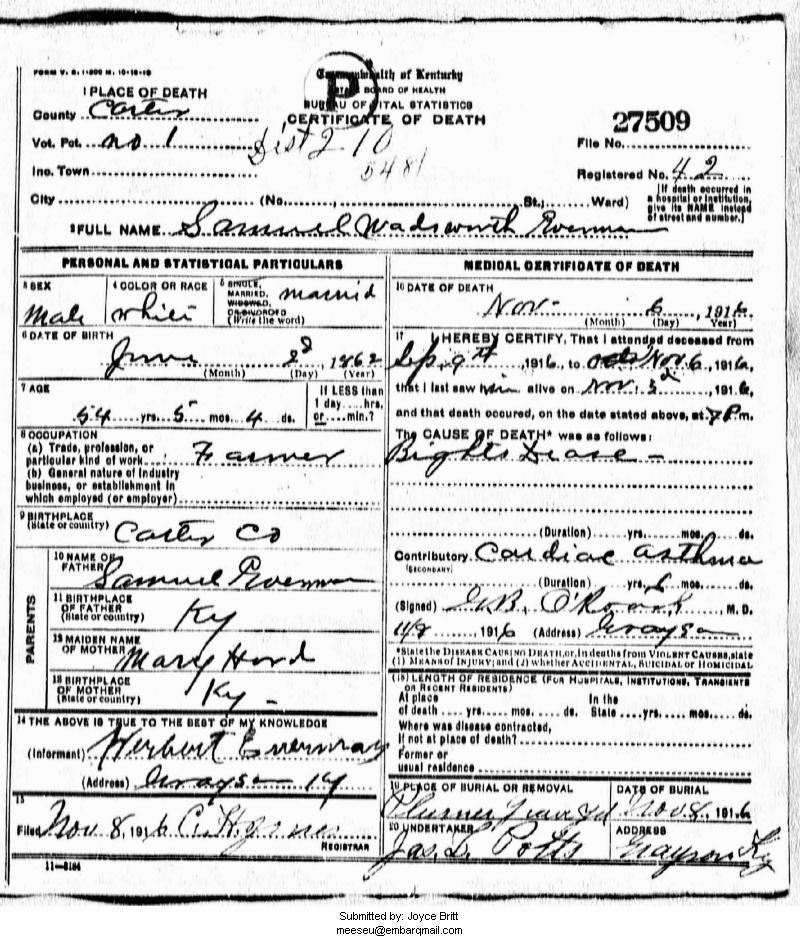 FORM V. S. 1-200 M. 10-18-10
Commonwealth of Kentucky
P
STATE BOARD OF HEALTH
BUREAU OF VITAL STATISTICS
CERTIFICATE OF DEATH
1 PLACE OF DEATH
County Carter
Vot. Pct. no 1 Dist 210
5481
Inc. Town
City (No. St.; Ward)
27509
File No.
Registered No. 42
[If death occurred in a hospital or institution, give its NAME instead of street and number.]
2 FULL NAME Samuel Wadsworth Everman
PERSONAL AND STATISTICAL PARTICULARS
3 SEX Male
4 COLOR OR RACE White
5 SINGLE, MARRIED, WIDOWED OR DIVORCED (Write the word) married
6 DATE OF BIRTH June 2d 1862
(Month) (Day) (Year)
7 AGE 54 yrs. 5 mos. 4 ds.
If LESS than 1 day....hrs, or....min.?
8 OCCUPATION
(a) Trade, profession, or particular kind of work Farmer
(b) General nature of industry business, or establishment in which employed (or employer)
9 BIRTHPLACE (State or country) Carter Co
PARENTS
10 NAME OF FATHER Samuel Everman
11 BIRTHPLACE OF FATHER (State or country) Ky
12 MAIDEN NAME OF MOTHER Mary Hord
13 BIRTHPLACE OF MOTHER (State or country) Ky -
14 THE ABOVE IS TRUE TO THE BEST OF MY KNOWLEDGE
(Informant) Herbert
(Address) Grayson Ky
15
Filed Nov 8, 1916
REGISTRAR
11-3184
MEDICAL CERTIFICATE OF DEATH
16 DATE OF DEATH Nov- 6, 1916
(Month) (Day) Year)
17 I HEREBY CERTIFY, That I attended deceased from
Sep. 9th, 1916, to Nov 6, 1916,
that I last saw him alive on Nov. 3d, 1916,
and that death occured, on the date stated above, at 7 P.m.
The CAUSE OF DEATH* was as follows:
Brights Diease -
(Duration) yrs. mos. ds.
Contributory Cardiac asthma
(SECONDARY)
(Duration) yrs. 6 mos. ds.
(Signed) M. D.
11/8 1916 (Address) Grayson
*State the DISEASE CAUSING DEATH, or, in deaths from VIOLENT CAUSES, state
(1) MEANS OF INJURY; and (2) whether ACCIDENTAL, SUICIDAL or HOMICIDAL
(18) LENGTH OF RESIDENCE (FOR HOSPITALS, INSTITUTIONS, TRANSIENTS OR RECENT RESIDENTS)
At place of death....yrs....mos....ds. In the State....yrs....mos....ds.
Where was disease contracted, If not at place of death?
Former or usual residence
19 PLACE OF BURIAL OR REMOVAL
DATE OF BURIAL Nov 8, 1916
20 UNDERTAKER Jas. L. Potts
ADDRESS Grayson Ky
Submitted by: Joyce Britt
meeseu@embarqmail.com